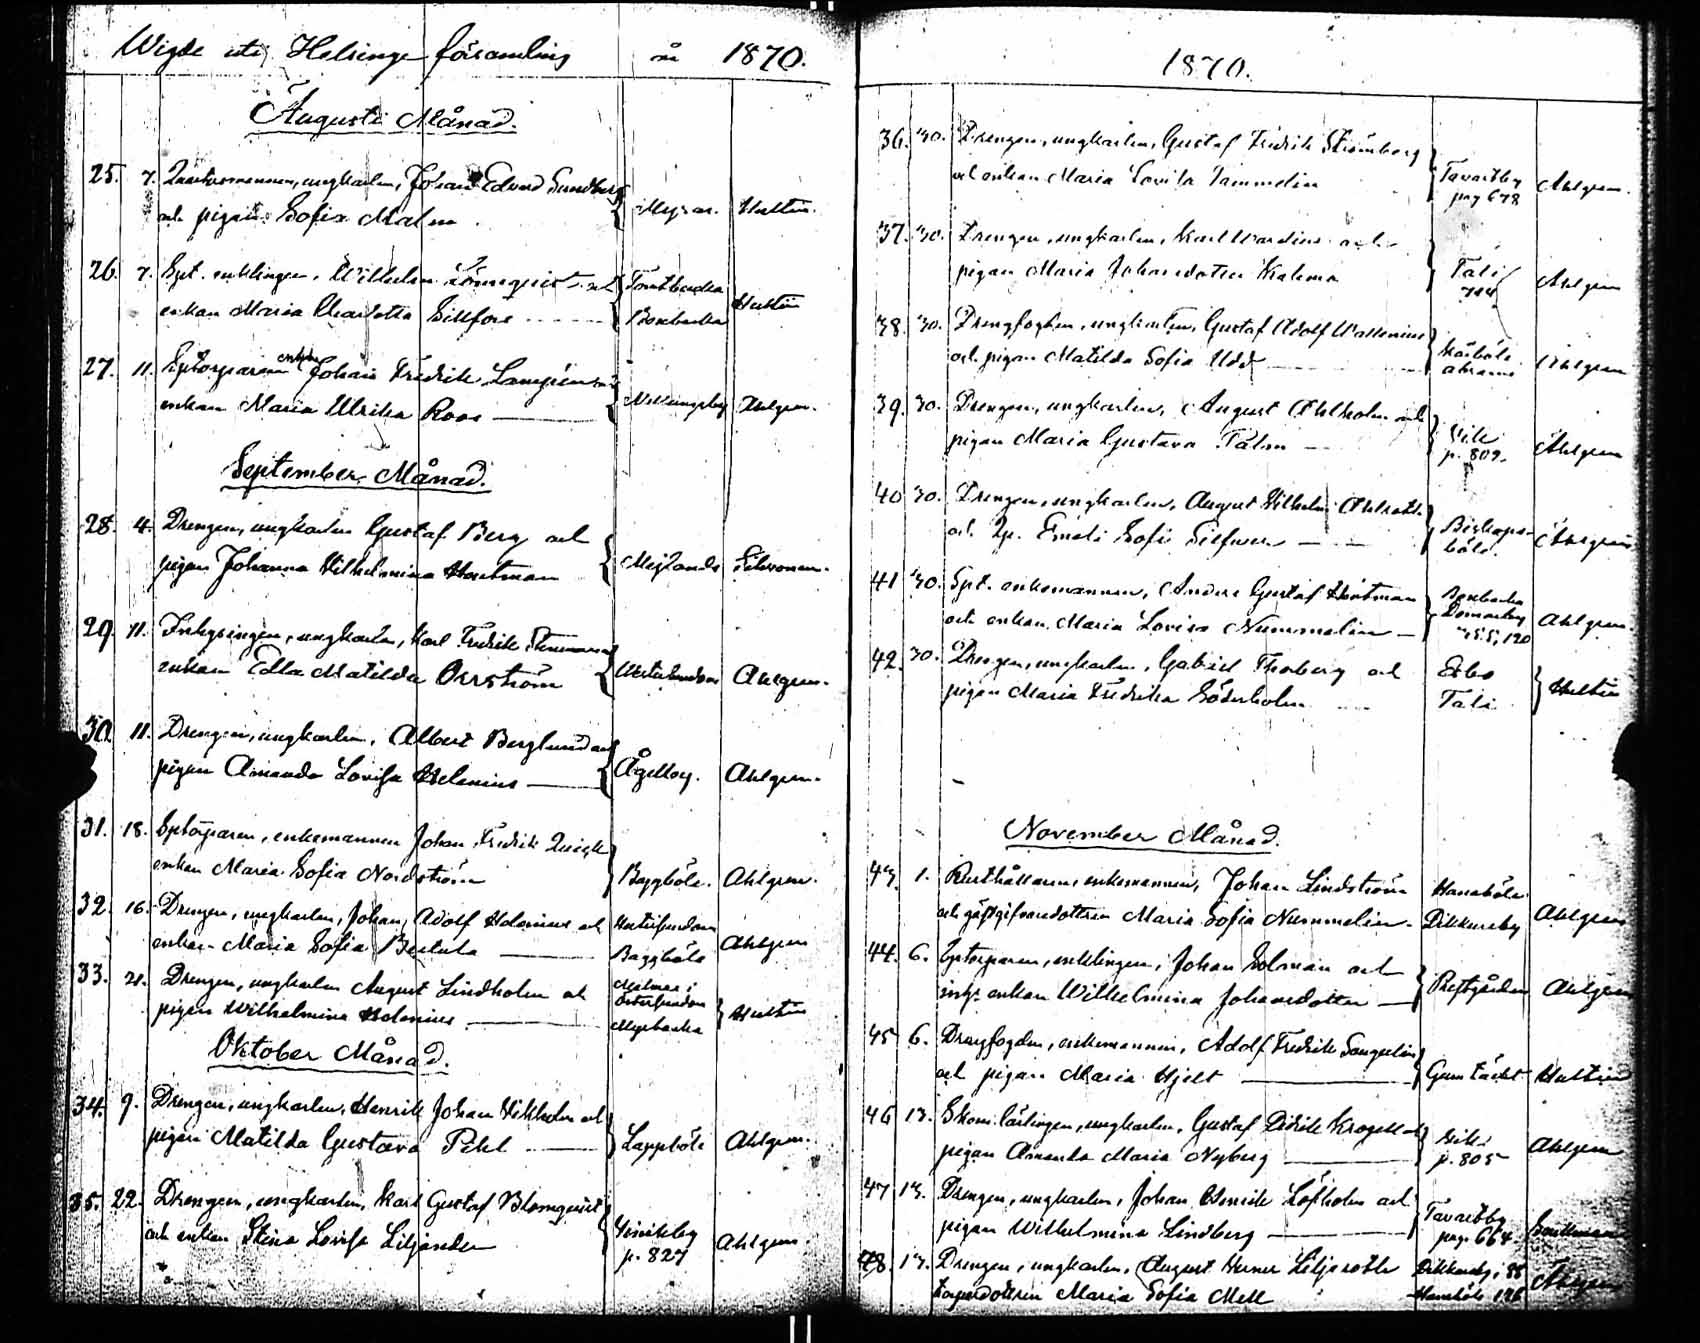 Wigde uti Helsinge församling år 1870.
Augusti Månad.
25. 7. ungkarlen, Johan Edvard Sundberg
och pigan Sofia Malm Hultin.
26. 7. Spt. enklingen, Wilhelm Lönnquist och Tomtbacka
enkan Maria Charlotta Sillfors Boxbacka Hultin
27. 11. Sptorparen enkl. Johan Fredrik Lampén och
enkan Maria Ulrika Roos Ahlgren.
September Månad.
28. 4. Drengen, ungkarlen Gustaf Berg och
pigan Johanna Vilhelmina Hartman
29. 11. Inhysingen, ungkarlen, Karl Fredrik
enkan Edla Matilda Orrström Ahlgren.
30. 11. Drengen, ungkarlen, Albert Berglund och
pigan Amanda Lovisa Helenius Åggelby. Ahlgren.
31. 18. Sptorparen, enkemannen Johan Fredrik
enkan Maria Sofia Nordström Baggböle. Ahlgren.
32. 16. Drengen, ungkarlen, Johan Adolf Helenius och
enkan Maria Sofia Baggböle Ahlgren
33. 21. Drengen, ungkarlen August Lindholm och Malmas i
pigan Wilhelmina Helenius Hultin
Oktober Månad.
34. 9. Drengen, ungkarlen, Henrik Johan Vikholm och
pigan Matilda Gustava Pihl Lappböle Ahlgren.
35. 22. Drengen, ungkarlen, Karl Gustaf Blomquist
och enkan Stina Lovisa Liljander p. 827 Ahlgren.
1870.
36. 30. Drengen, ungkarlen, Gustaf Fredrik Strömberg
och enkan Maria Lovisa Tammelin Tavastby pag 678 Ahlgren.
37. 30. Drengen, ungkarlen, Karl Wardius och
pigan Maria Johansdotter Tali 714 Ahlgren
38. 30. Drengfogden, ungkarlen, Gustaf Adolf Wallenius
och pigan Matilda Sofia Udd Kårböle Ahlgren
39. 30. Drengen, ungkarlen, August Ahlholm och
pigan Maria Gustava Palm Vik p. 809. Ahlgren
40. 30. Drengen, ungkarlen, August Vilhelm Ahlroth
och Emeli Sofia Silfver Biskopsböle Ahlgren
41. 30. Spt. enkemannen, Anders Gustaf Boxbacka
och enkan Maria Lovisa Nummelin Domarby Ahlgren.
42. 30. Drengen, ungkarlen, Gabriel Thorberg och Esbo
pigan Maria Fredrika Söderholm Tali Hultin
November Månad.
43. 1. Rusthållaren, enkemannen, Johan Lindström Hanaböle
och gästgifvaredottren Maria Sofia Nummelin. Dickursby Ahlgren
44. 6. Sptorparen, enklingen, Johan Solman och
enkan Wilhelmina Johansdotter Prestgården Ahlgren
45. 6. Drengfogden, enkemannen, Adolf Fredrik Sangelin
och pigan Maria Hjelt Gumtäkt Hultin
46. 13. Skom. lärlingen, ungkarlen, Gustaf Didrik Krogell och
pigan Amanda Maria Nyberg p. 805 Ahlgren
47. 13. Drengen, ungkarlen, Johan Henrik Löfholm och
pigan Wilhelmina Lindberg Tavastby pag. 664.
48. 13. Drengen, ungkarlen, August Verner Liljeroth Dickursby, 88
torparedottren Maria Sofia Mell Ahlgren